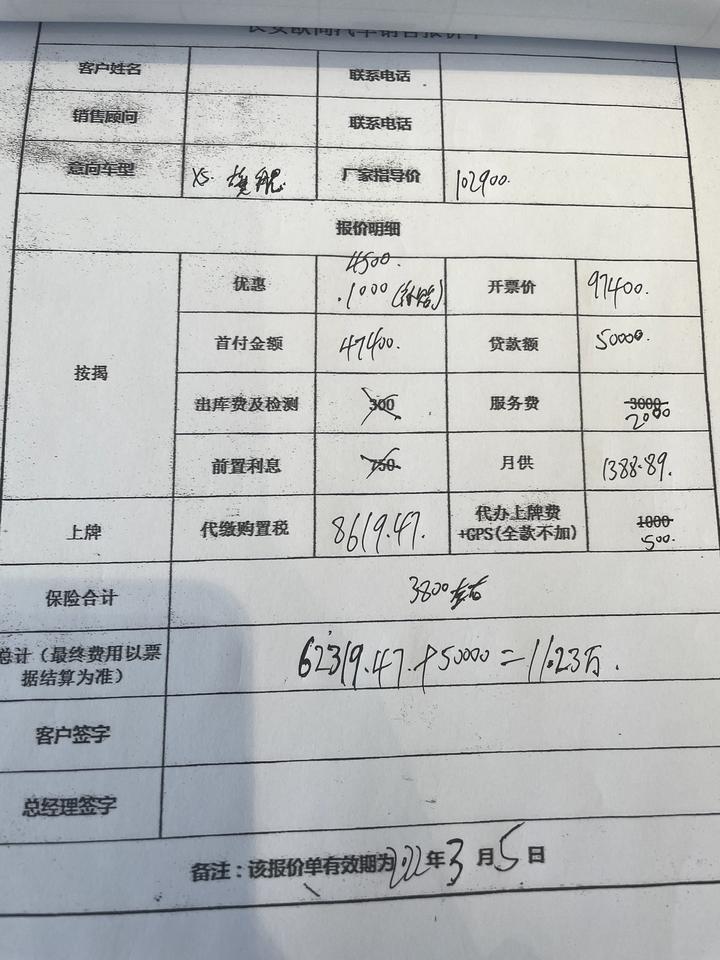 客户姓名 联系电话
销售顾问 联系电话
意向车型 X5. 旗舰 厂家指导价 102900.
报价明细
按揭 优惠 4500. 开票价 97400.
.1000 (补贴)
首付金额 47400. 贷款额 50000.
出库费及检测 300 服务费 3000
2000
前置利息 750 月供 1388.89.
上牌 代缴购置税 8619.47. 代办上牌费 1000
+GPS(全款不加) 500.
保险合计 3800左右
总计（最终费用以票 62319.47.+50000=11.23万.
据结算为准）
客户签字
总经理签字
备注：该报价单有效期为2022年3月5日